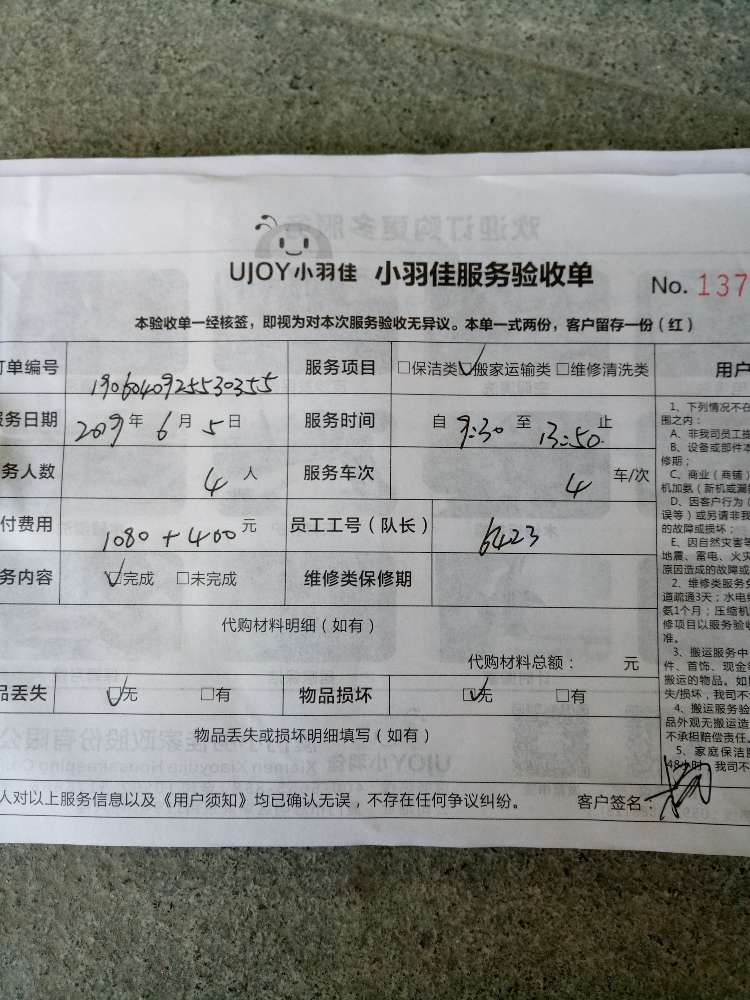 UJOY小羽佳 小羽佳服务验收单 No. 137
本验收单一经核签，即视为对本次服务验收无异议。本单一式两份，客户留存一份（红）
订单编号 1906040925530355 服务项目 □保洁类 ☑搬家运输类 □维修清洗类 用户
务日期 2019年6月5日 服务时间 自 9:30 至 13:50 止
务人数 4 人 服务车次 4 车/次
付费用 1080 + 400 元 员工工号（队长） 6423
务内容 ☑完成 □未完成 维修类保修期
代购材料明细（如有）
代购材料总额： 元
品丢失 ☑无 □有 物品损坏 ☑无 □有
物品丢失或损坏明细填写（如有）
人对以上服务信息以及《用户须知》均已确认无误，不存在任何争议纠纷。 客户签名：
1、下列情况不在
围之内：
A、非我司员工操
B、设备或部件本
修期；
C、商业（商铺）
机加氨（新机或漏
D、因客户行为（
误等）或另请非我
的故障或损坏；
E、因自然灾害等
地震、雷电、火灾
原因造成的故障或
2、维修类服务免
道疏通3天；水电维
氨1个月；压缩机
修项目以服务验收
准。
3、搬运服务中
件、首饰、现金等
搬运的物品。如因
失/损坏，我司不
4、搬运服务验
品外观无搬运造
不承担赔偿责任。
5、家庭保洁服
48小时，我司不